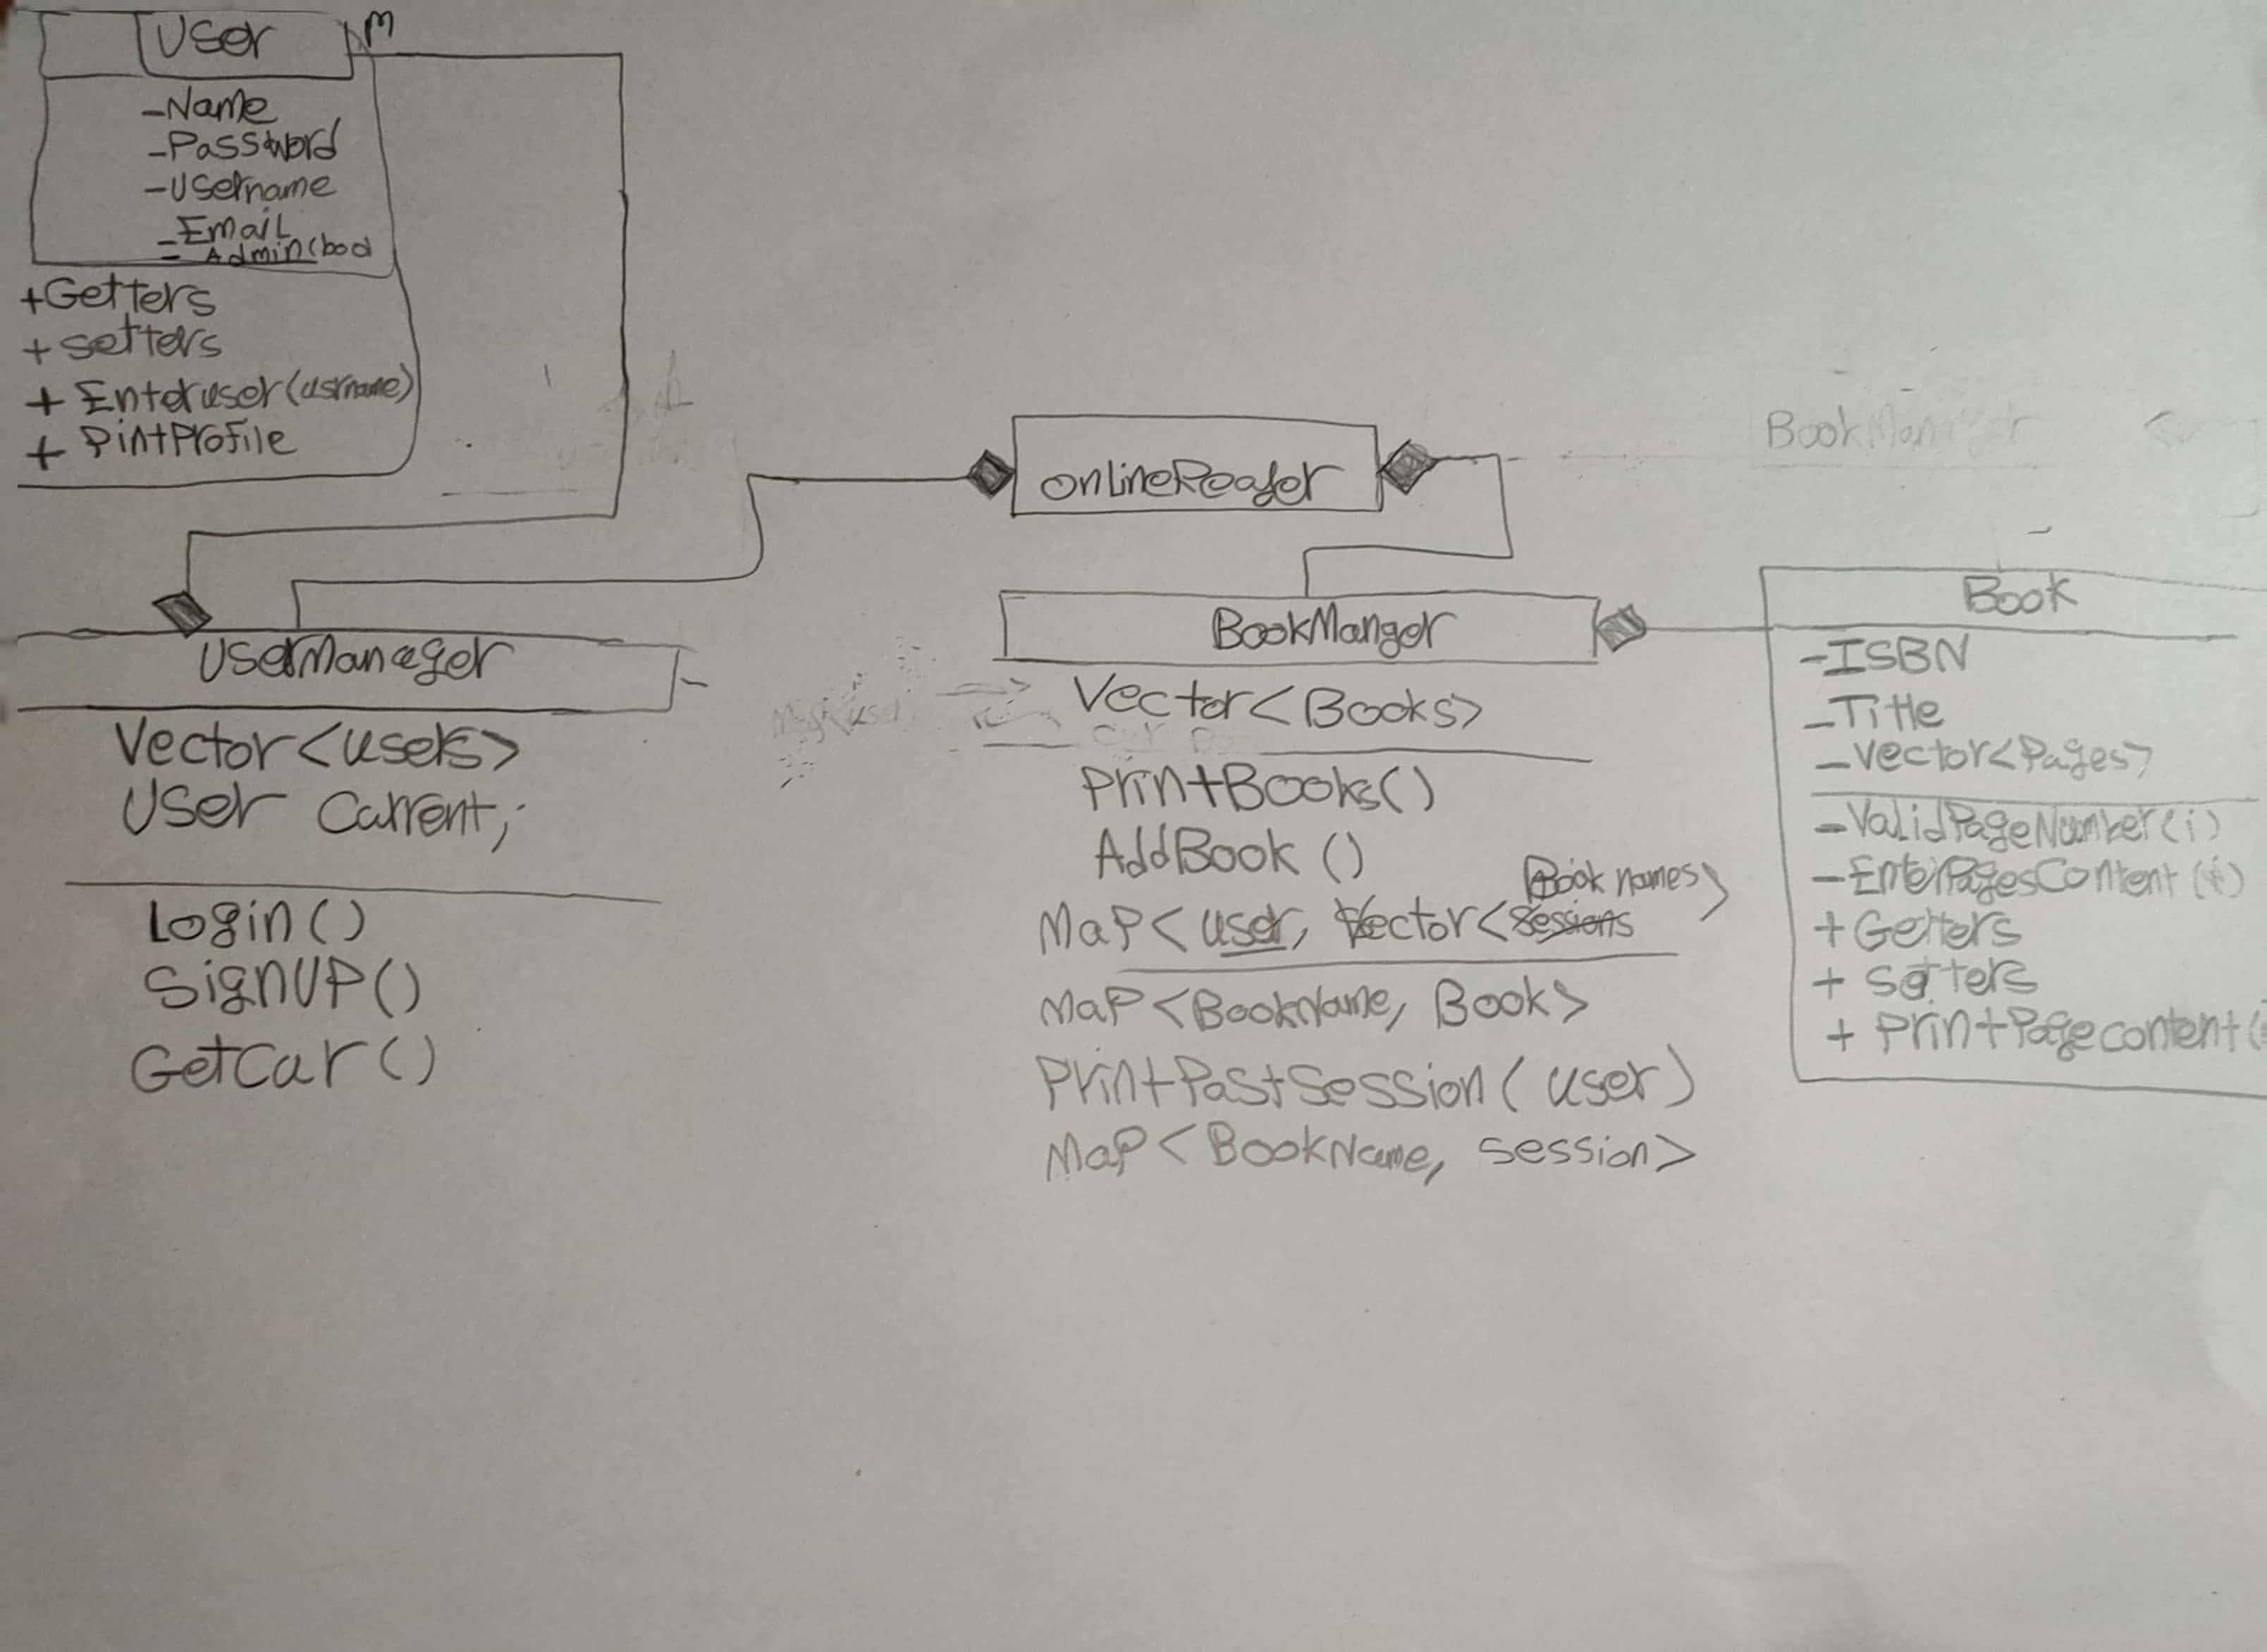 User
M
-Name
-Password
-Username
-Email
- Admin(bool
+Getters
+ setters
+ Enteruser(usrname)
+ PintProfile
onlineReader
UserManager
Vector<users>
User Current;
Login()
SignUP()
GetCur()
BookManger
Vector<Books>
PrintBooks()
AddBook ()
Book names>
Map<user, Vector<Sessions
Map<BookName, Book>
PrintPastSession(user)
Map<BookName, session>
BookManager
Book
-ISBN
-Title
-Vector<Pages>
-ValidPageNumber(i)
-EnterPagesContent(i)
+Getters
+ setters
+ PrintPagecontent(i